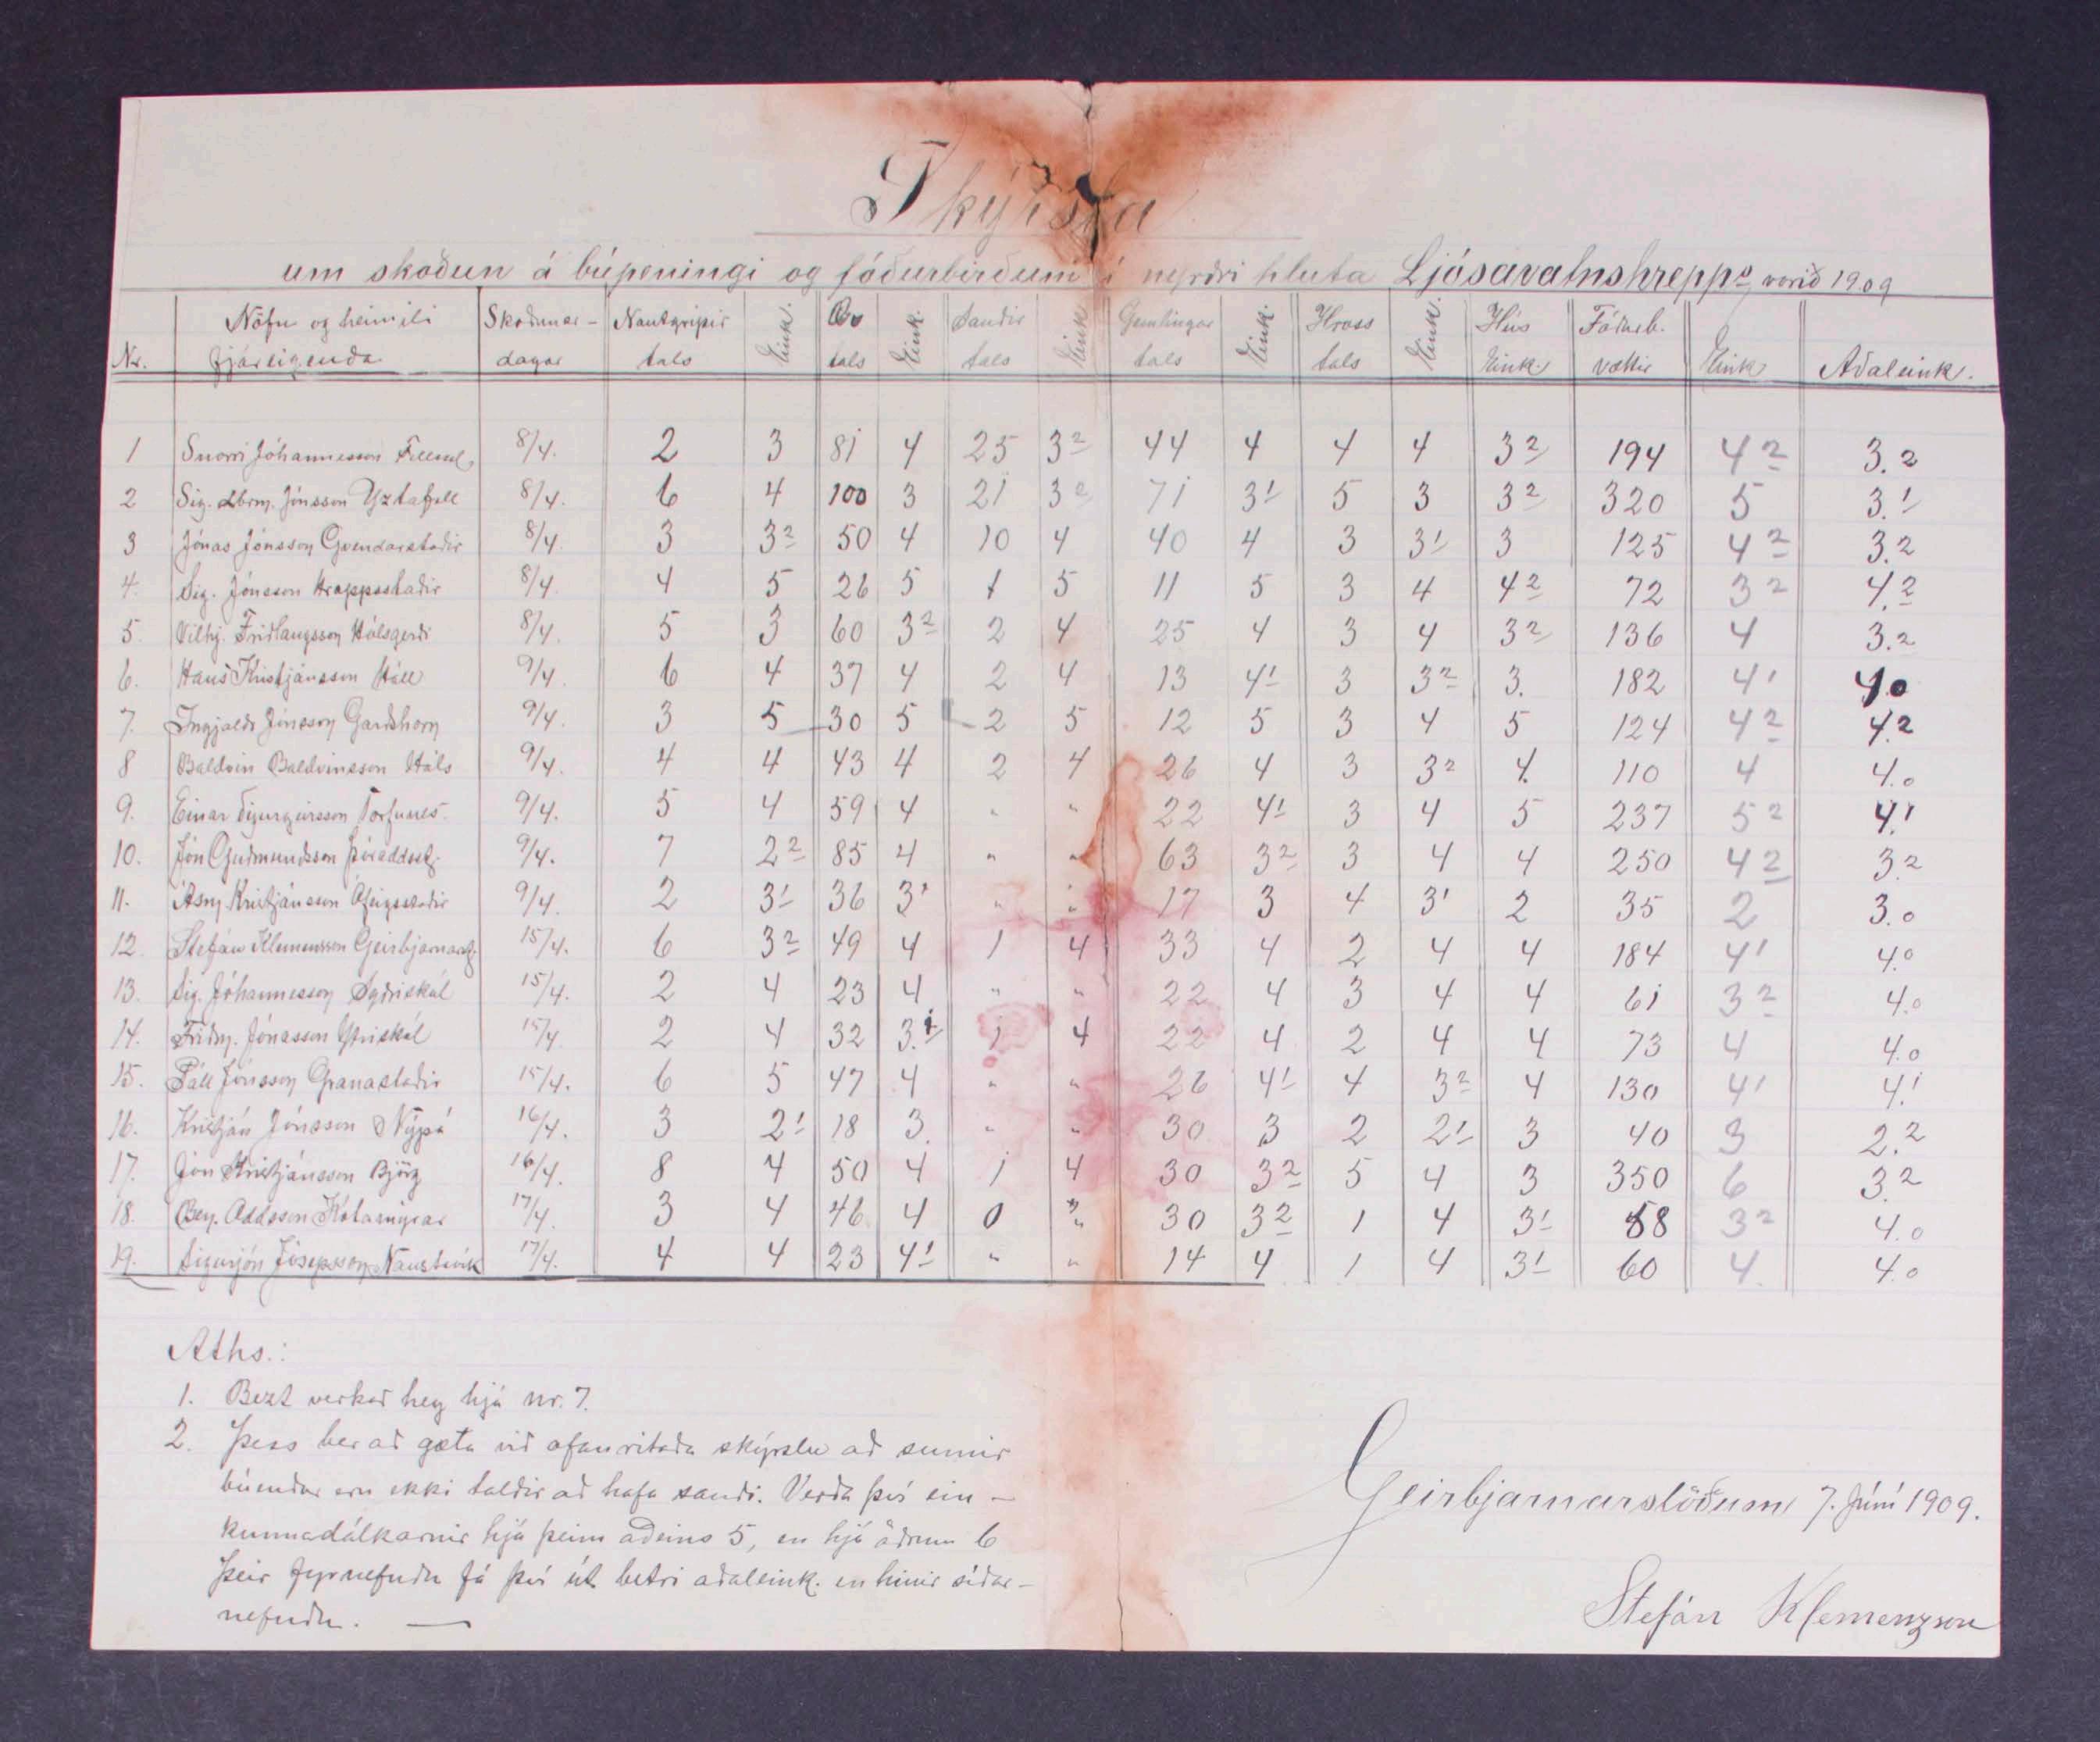 Skýrsla
um skoðun á búpeningi og fóðurbirðum í neðri hluta Ljósavatnshrepps vorið 1909
Nr. | Nöfn og heimili fjáreigenda | Skoðunar-dagar | Nautgripir tals | Eink. | Ær tals | Eink. | Sauðir tals | Eink. | Gemlingar tals | Eink. | Hross tals | Eink. | Hús Eink. | Fóðurb. vættir | Eink. | Aðaleink.
1 Snorri Jóhannesson Fellssel 8/4. 2 3 81 4 25 3² 44 4 4 4 3² 194 4² 3.2
2 Sig. Jónsson Yztafell 8/4. 6 4 100 3 21 3² 71 3¹ 5 3 3² 320 5 3.1
3 Jónas Jónsson Gvendarstaðir 8/4. 3 3² 50 4 10 4 40 4 3 3¹ 3 125 4² 3.2
4. Sig. Jónsson Hrappsstaðir 8/4. 4 5 26 5 1 5 11 5 3 4 4² 72 3² 4.2
5. Vilhj. Friðlaugsson Hálsgerði 8/4. 5 3 60 3² 2 4 25 4 3 4 3² 136 4 3.2
6. Hans Kristjánsson Hóll 9/4. 6 4 37 4 2 4 13 4¹ 3 3² 3. 182 4¹ 4.0
7. Ingjaldr Jónsson Garðshorn 9/4. 3 5 30 5 2 5 12 5 3 4 5 124 4² 4.2
8 Baldvin Baldvinsson Háls 9/4. 4 4 43 4 2 4 26 4 3 3² 4. 110 4 4.0
9. Einar Sigurgeirsson Torfunes 9/4. 5 4 59 4 " " 22 4¹ 3 4 5 237 5² 4.1
10. Jón Guðmundsson Þóroddsst. 9/4. 7 2² 85 4 " " 63 3² 3 4 4 250 4² 3.2
11. Ásm. Kristjánsson Ófeigsstaðir 9/4. 2 3¹ 36 3¹ " " 17 3 4 3¹ 2 35 2 3.0
12. Stefán Klemensson Geirbjarnarst. 15/4. 6 3² 49 4 1 4 33 4 2 4 4 184 4¹ 4.0
13. Sig. Jóhannesson Syðriskál 15/4. 2 4 23 4 " " 22 4 3 4 4 61 3² 4.0
14. Friðm. Jónasson Ytriskál 15/4 2 4 32 3.¹ 1 4 22 4 2 4 4 73 4 4.0
15. Páll Jónsson Granastaðir 15/4. 6 5 47 4 " " 26 4¹ 4 3² 4 130 4¹ 4.1
16. Kristján Jónsson Nýpá 16/4. 3 2¹ 18 3. " " 30 3 2 2¹ 3 40 3 2.2
17. Jón Kristjánsson Björg 16/4. 8 4 50 4 1 4 30 3² 5 4 3 350 6 3.2
18. Ben. Oddsson Kotamýrar 17/4. 3 4 46 4 0 " 30 3² 1 4 3¹ 58 3² 4.0
19. Sigurjón Jósepsson Naustavík 17/4. 4 4 23 4¹ " " 14 4 1 4 3¹ 60 4. 4.0
Aths.:
1. Bezt verkað hey hjá nr. 7.
2. Þess ber að gæta við ofanritaða skýrslu að sumir
búendur eru ekki taldir að hafa sauði. Verða því ein-
kunnadálkarnir hjá þeim aðeins 5, en hjá öðrum 6
Þeir fyrnefndu fá því út betri aðaleink. en hinir síðar-
nefndu. —
Geirbjarnarstöðum 7. Júní 1909.
Stefán Klemenzson